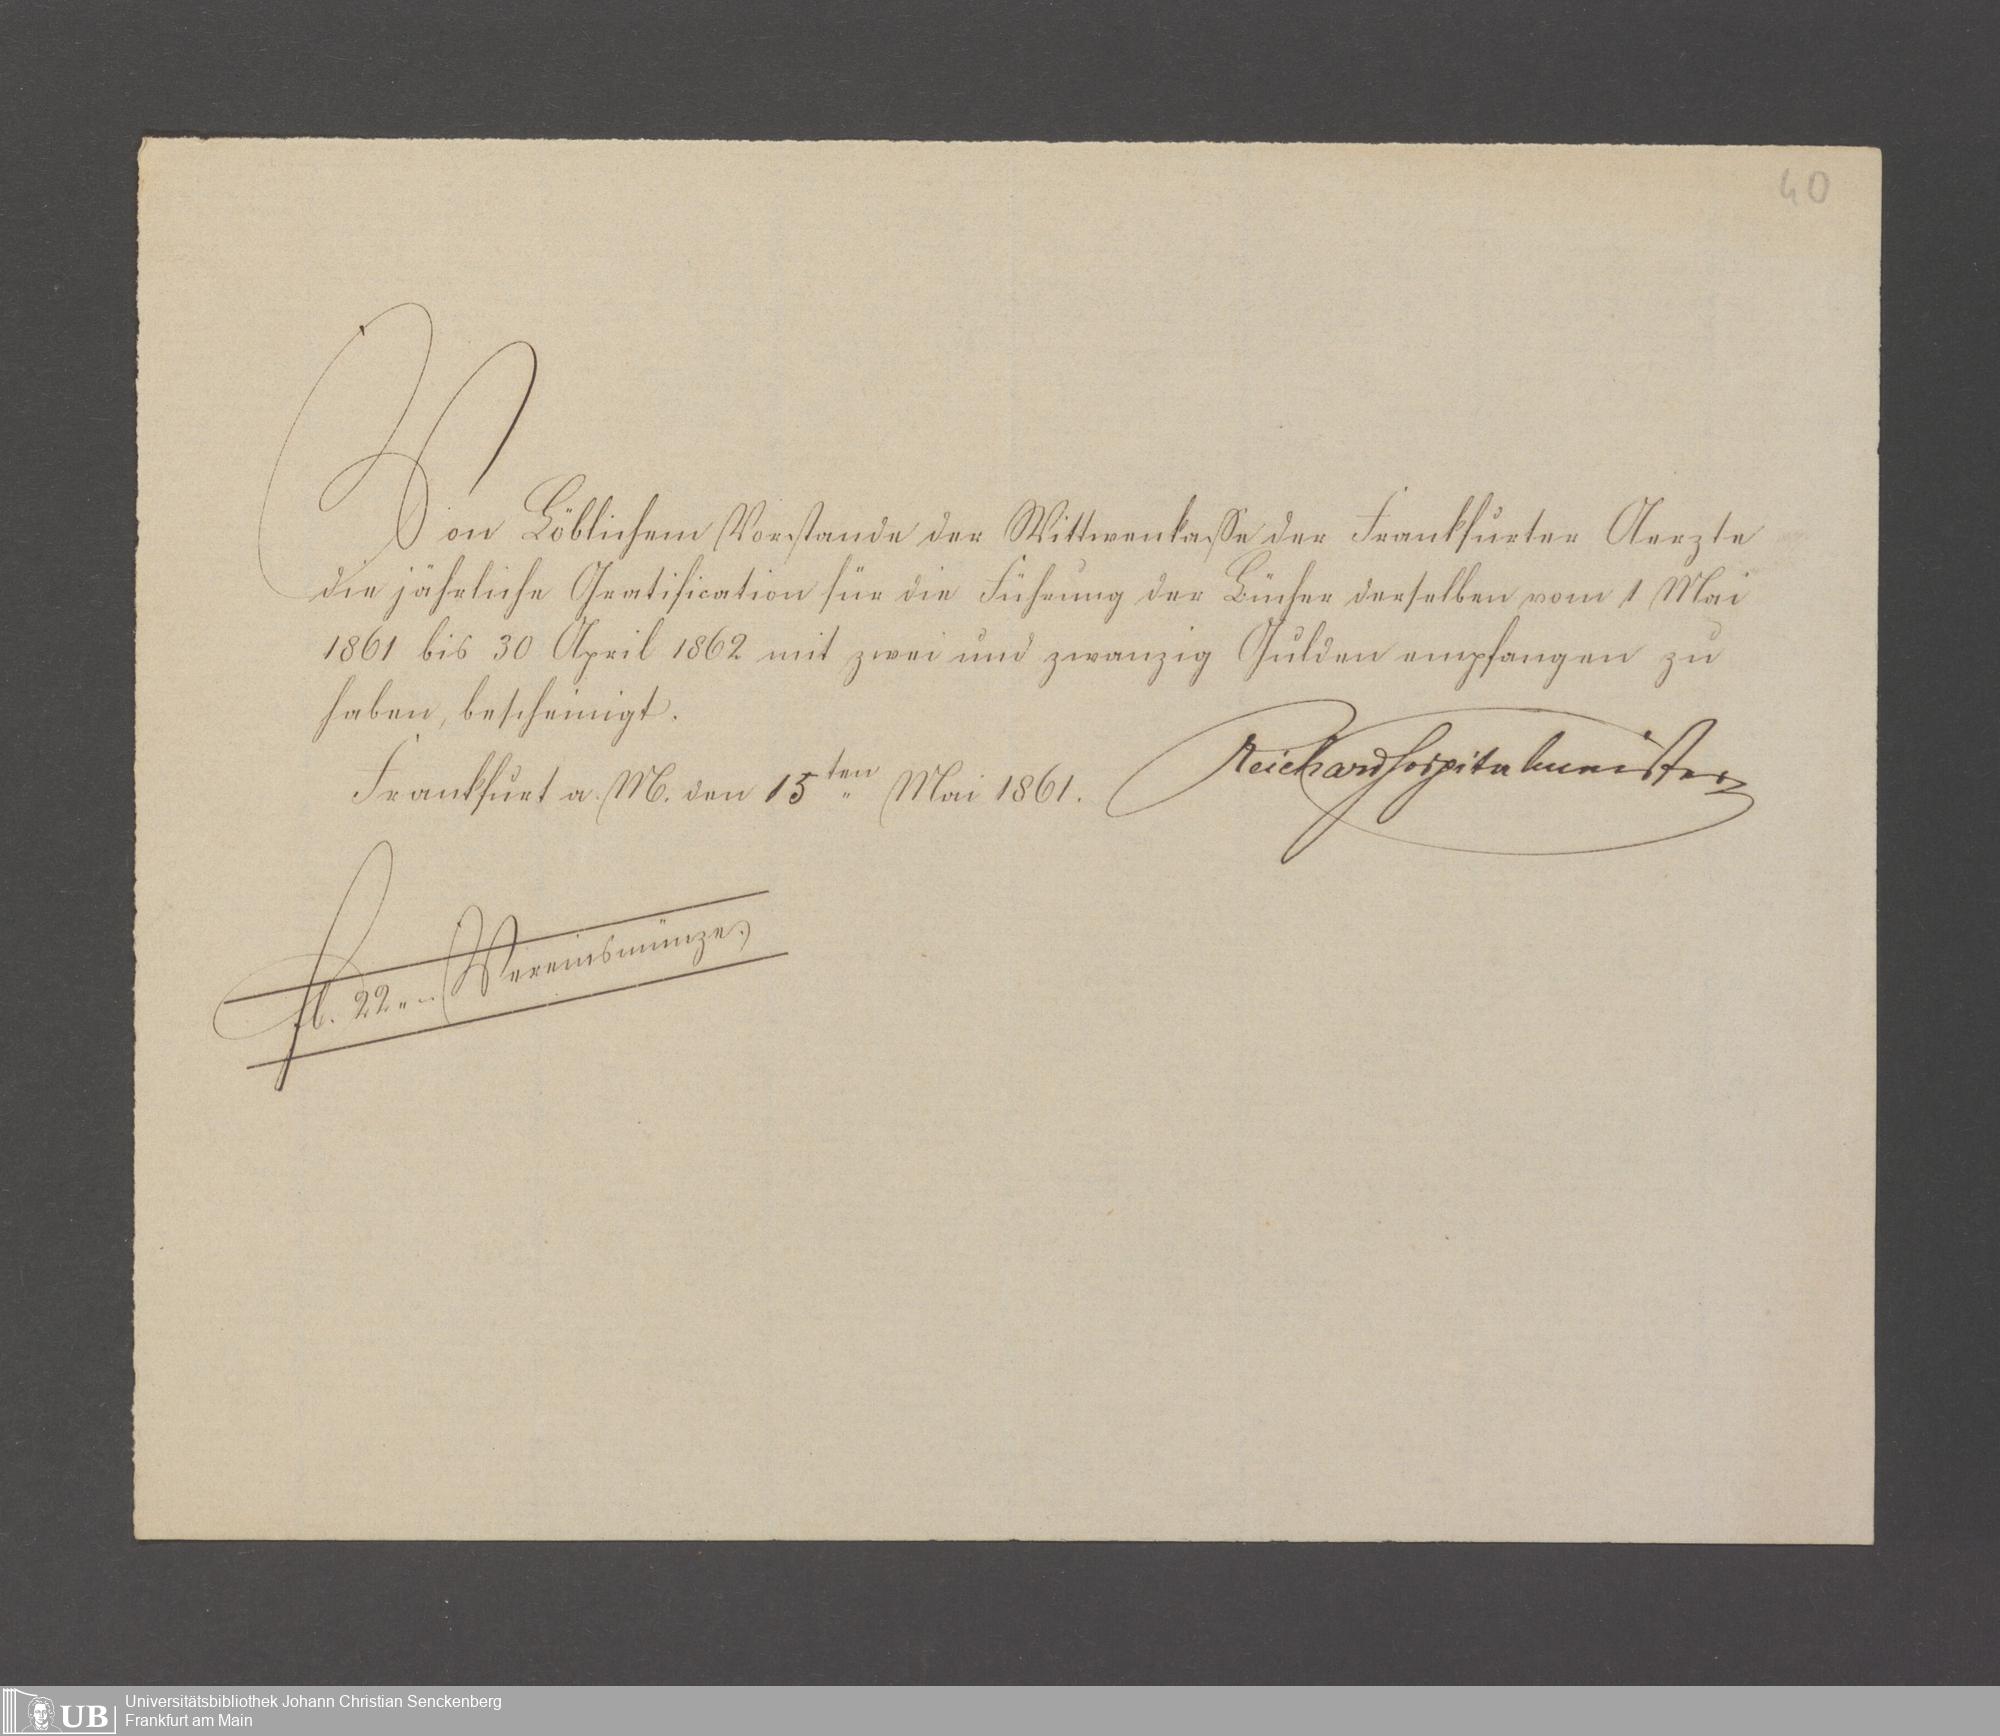 40
Von Löblichem Vorstande der Wittwenkasse der Frankfurter Aerzte
die jährliche Gratification für die Führung der Bücher derselben vom 1 Mai
1861 bis 30 April 1862 mit zwei und zwanzig Gulden empfangen zu
haben, bescheinigt.
Frankfurt a. M. den 15ten Mai 1861. Reichard Hospitalmeister
fl. 22 „ – (Vereinsmünze.)
UB Universitätsbibliothek Johann Christian Senckenberg
Frankfurt am Main